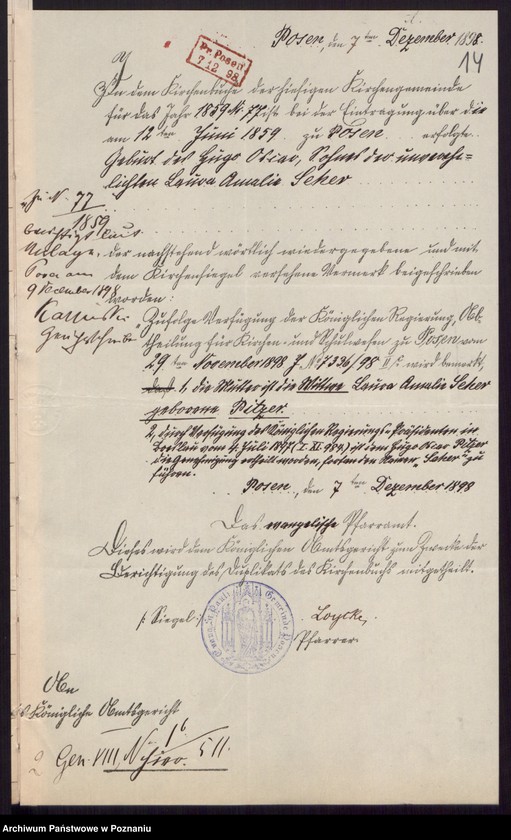 Posen, den 7ten Dezember 1898.
14
Pr. Posen
7 12 98
In dem Kirchenbuche der hiesigen Kirchengemeinde
für das Jahr 1859 N. 77 ist bei der Eintragung über die
am 12ten Juni 1859 zu Posen erfolgte
Geburt des Hugo Oscar, Sohnes der unverehe-
lichten Laura Amalie Seher
Zu N. 77
1859
berichtigt laut
Anlage.
Posen am
9 Dezember 1898
Gerichtsschreiber
der nachstehend wörtlich wiedergegebene und mit
dem Kirchensiegel versehene Vermerk beigeschrieben
worden:
Zufolge Verfügung der Königlichen Regierung, Ab-
theilung für Kirchen- und Schulwesen zu Posen, vom
29ten November 1898 J. N. 7336/98 II wird bemerkt,
daß 1, die Mutter ist die Wittwe Laura Amalie Seher
geborene Pilzer.
2, durch Verfügung des Königlichen Regierungs-Präsidenten in
Breslau vom 4. Juli 1897 (I. XI. 984) ist dem Hugo Oscar Pilzer
die Genehmigung ertheilt worden, fortan den Namen "Seher" zu
führen.
Posen, den 7ten Dezember 1898
Das evangelische Pfarramt.
Dieses wird dem Königlichen Amtsgericht zum Zwecke der
Berichtigung des Duplikats des Kirchenbuchs mitgetheilt.
Siegel.
Loycke,
Pfarrer
An
das Königliche Amtsgericht
Gen. VIII. N. 16
511.
2
Archiwum Państwowe w Poznaniu